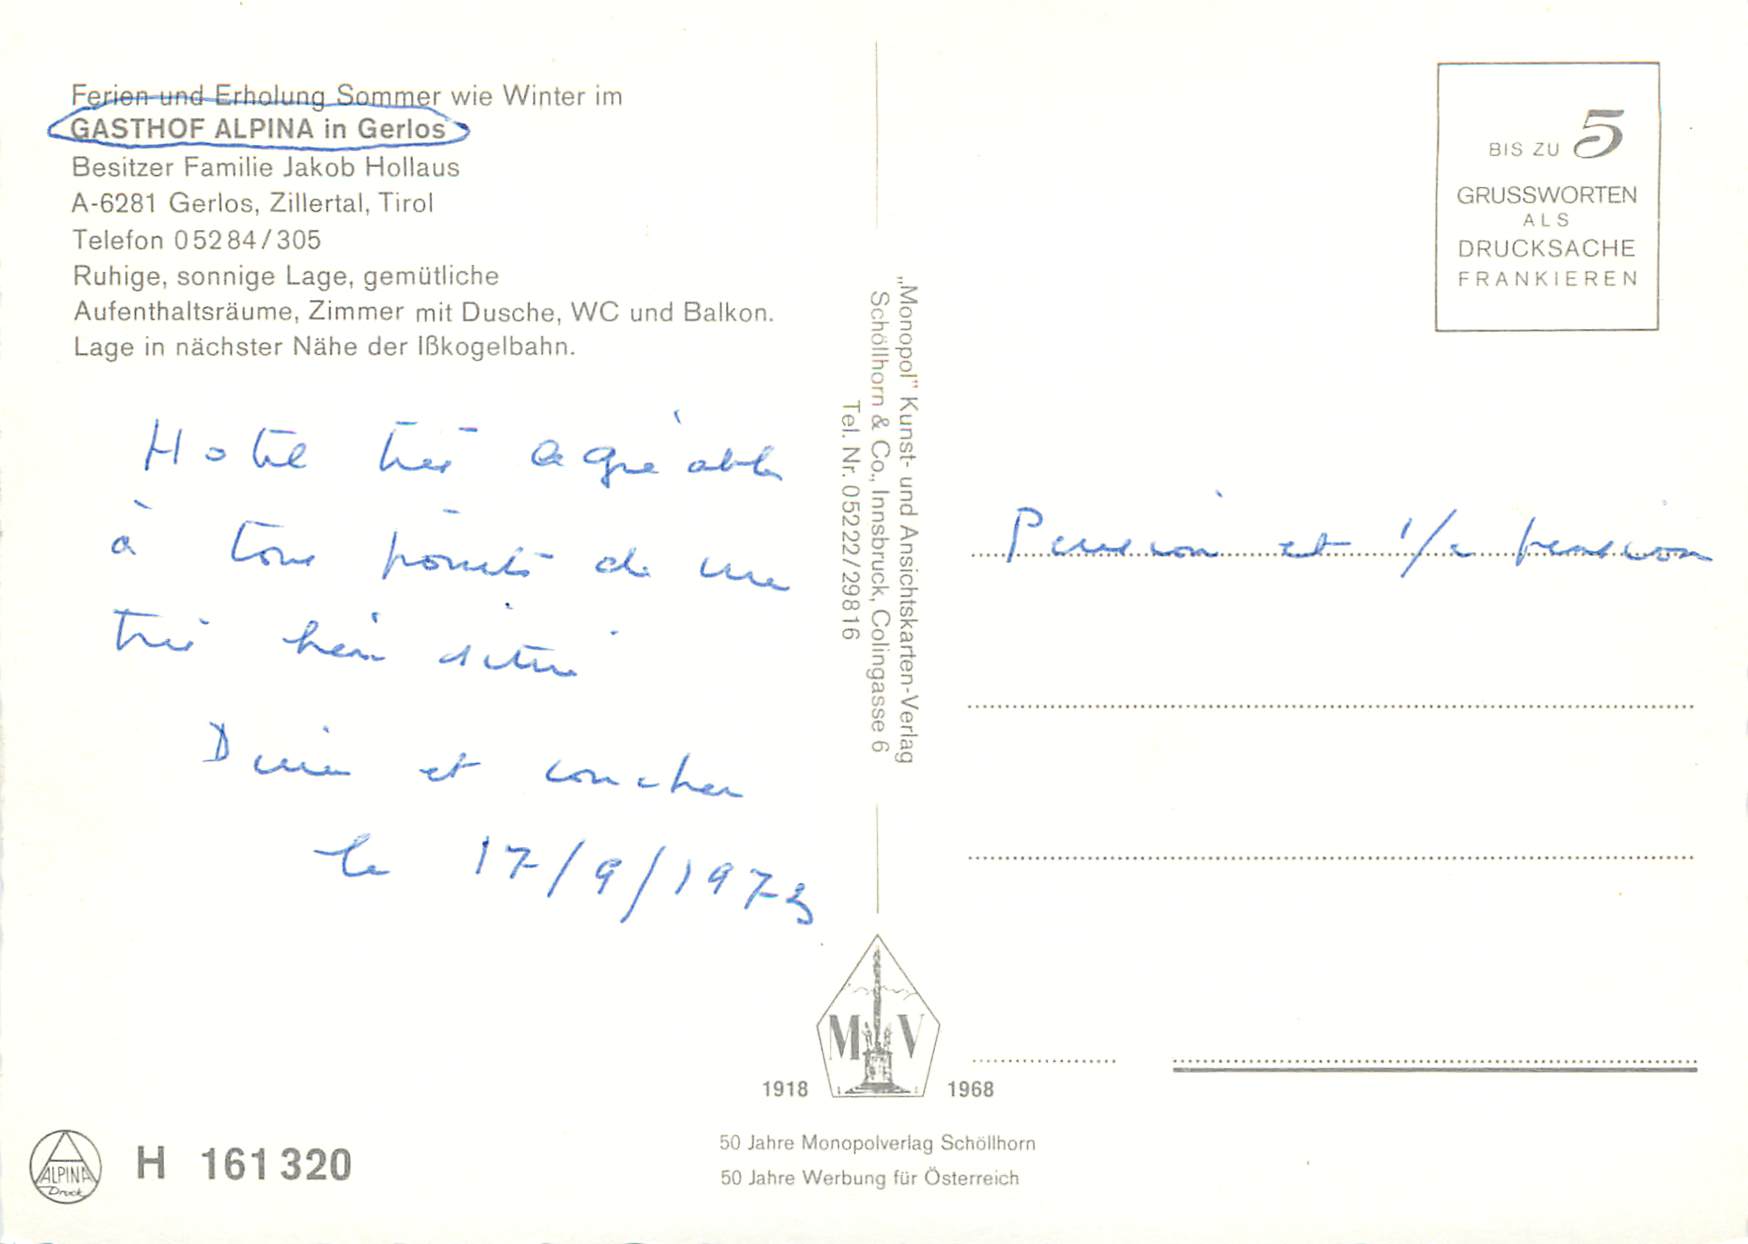 Ferien und Erholung Sommer wie Winter im
GASTHOF ALPINA in Gerlos
Besitzer Familie Jakob Hollaus
A-6281 Gerlos, Zillertal, Tirol
Telefon 05284/305
Ruhige, sonnige Lage, gemütliche
Aufenthaltsräume, Zimmer mit Dusche, WC und Balkon.
Lage in nächster Nähe der Ißkogelbahn.
Hotel très agréable
à tous points de vue
très bien situé
Diner et coucher
le 17/9/1973
„Monopol" Kunst- und Ansichtskarten-Verlag
Schöllhorn & Co., Innsbruck, Colingasse 6
Tel. Nr. 05222/29816
BIS ZU 5
GRUSSWORTEN
ALS
DRUCKSACHE
FRANKIEREN
Pension et 1/2 pension
M V
1918 1968
50 Jahre Monopolverlag Schöllhorn
50 Jahre Werbung für Österreich
ALPINA
Druck
H 161 320